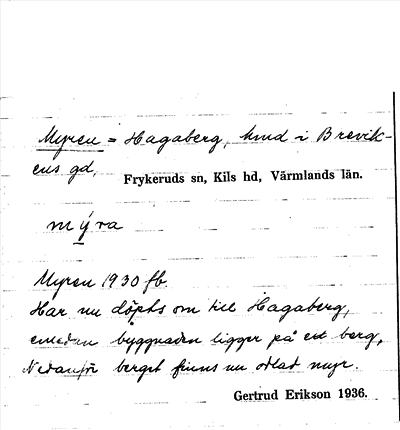 Myren = Hagaberg, hmd i Brevik-
ens gd,
Frykeruds sn, Kils hd, Värmlands län.
mýra
Myren 1930 fb.
Har nu döpts om till Hagaberg,
emedan byggnaden ligger på ett berg,
Nedanför berget finns en odlad myr.
Gertrud Erikson 1936.